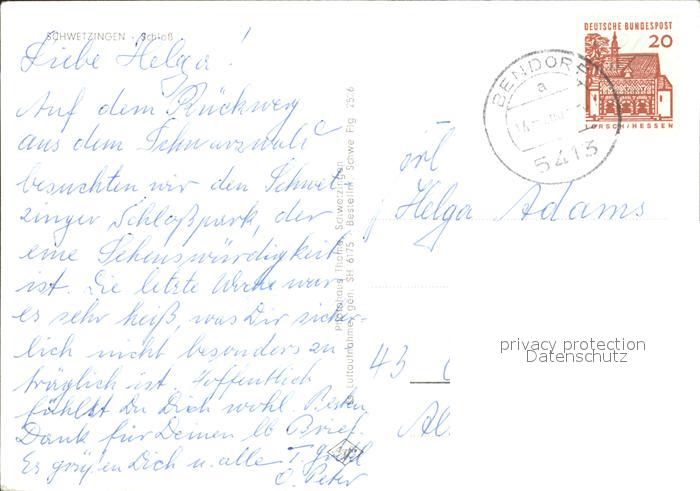 SCHWETZINGEN - Schloß
Liebe Helga!
Auf dem Rückweg
aus dem Schwarzwald
besuchten wir den Schwet-
zinger Schloßpark, der
eine Sehenswürdigkeit
ist. Die letzte Woche war
es sehr heiß, was Dir sicher-
lich nicht besonders zu
träglich ist. Hoffentlich
fühlst Du Dich wohl. Besten
Dank für Deinen lb Brief.
Es grüßen Dich u. alle T. Gretel
O. Peter
Photohaus Thome, Schwetzingen
Luftaufnahme gen. SH 6175 - Bestell-Nr. Schwe Flg 25:6
DEUTSCHE BUNDESPOST
20
LORSCH/HESSEN
BENDORF
a
5413
Frl
Helga Adams
privacy protection
Datenschutz
43
Al